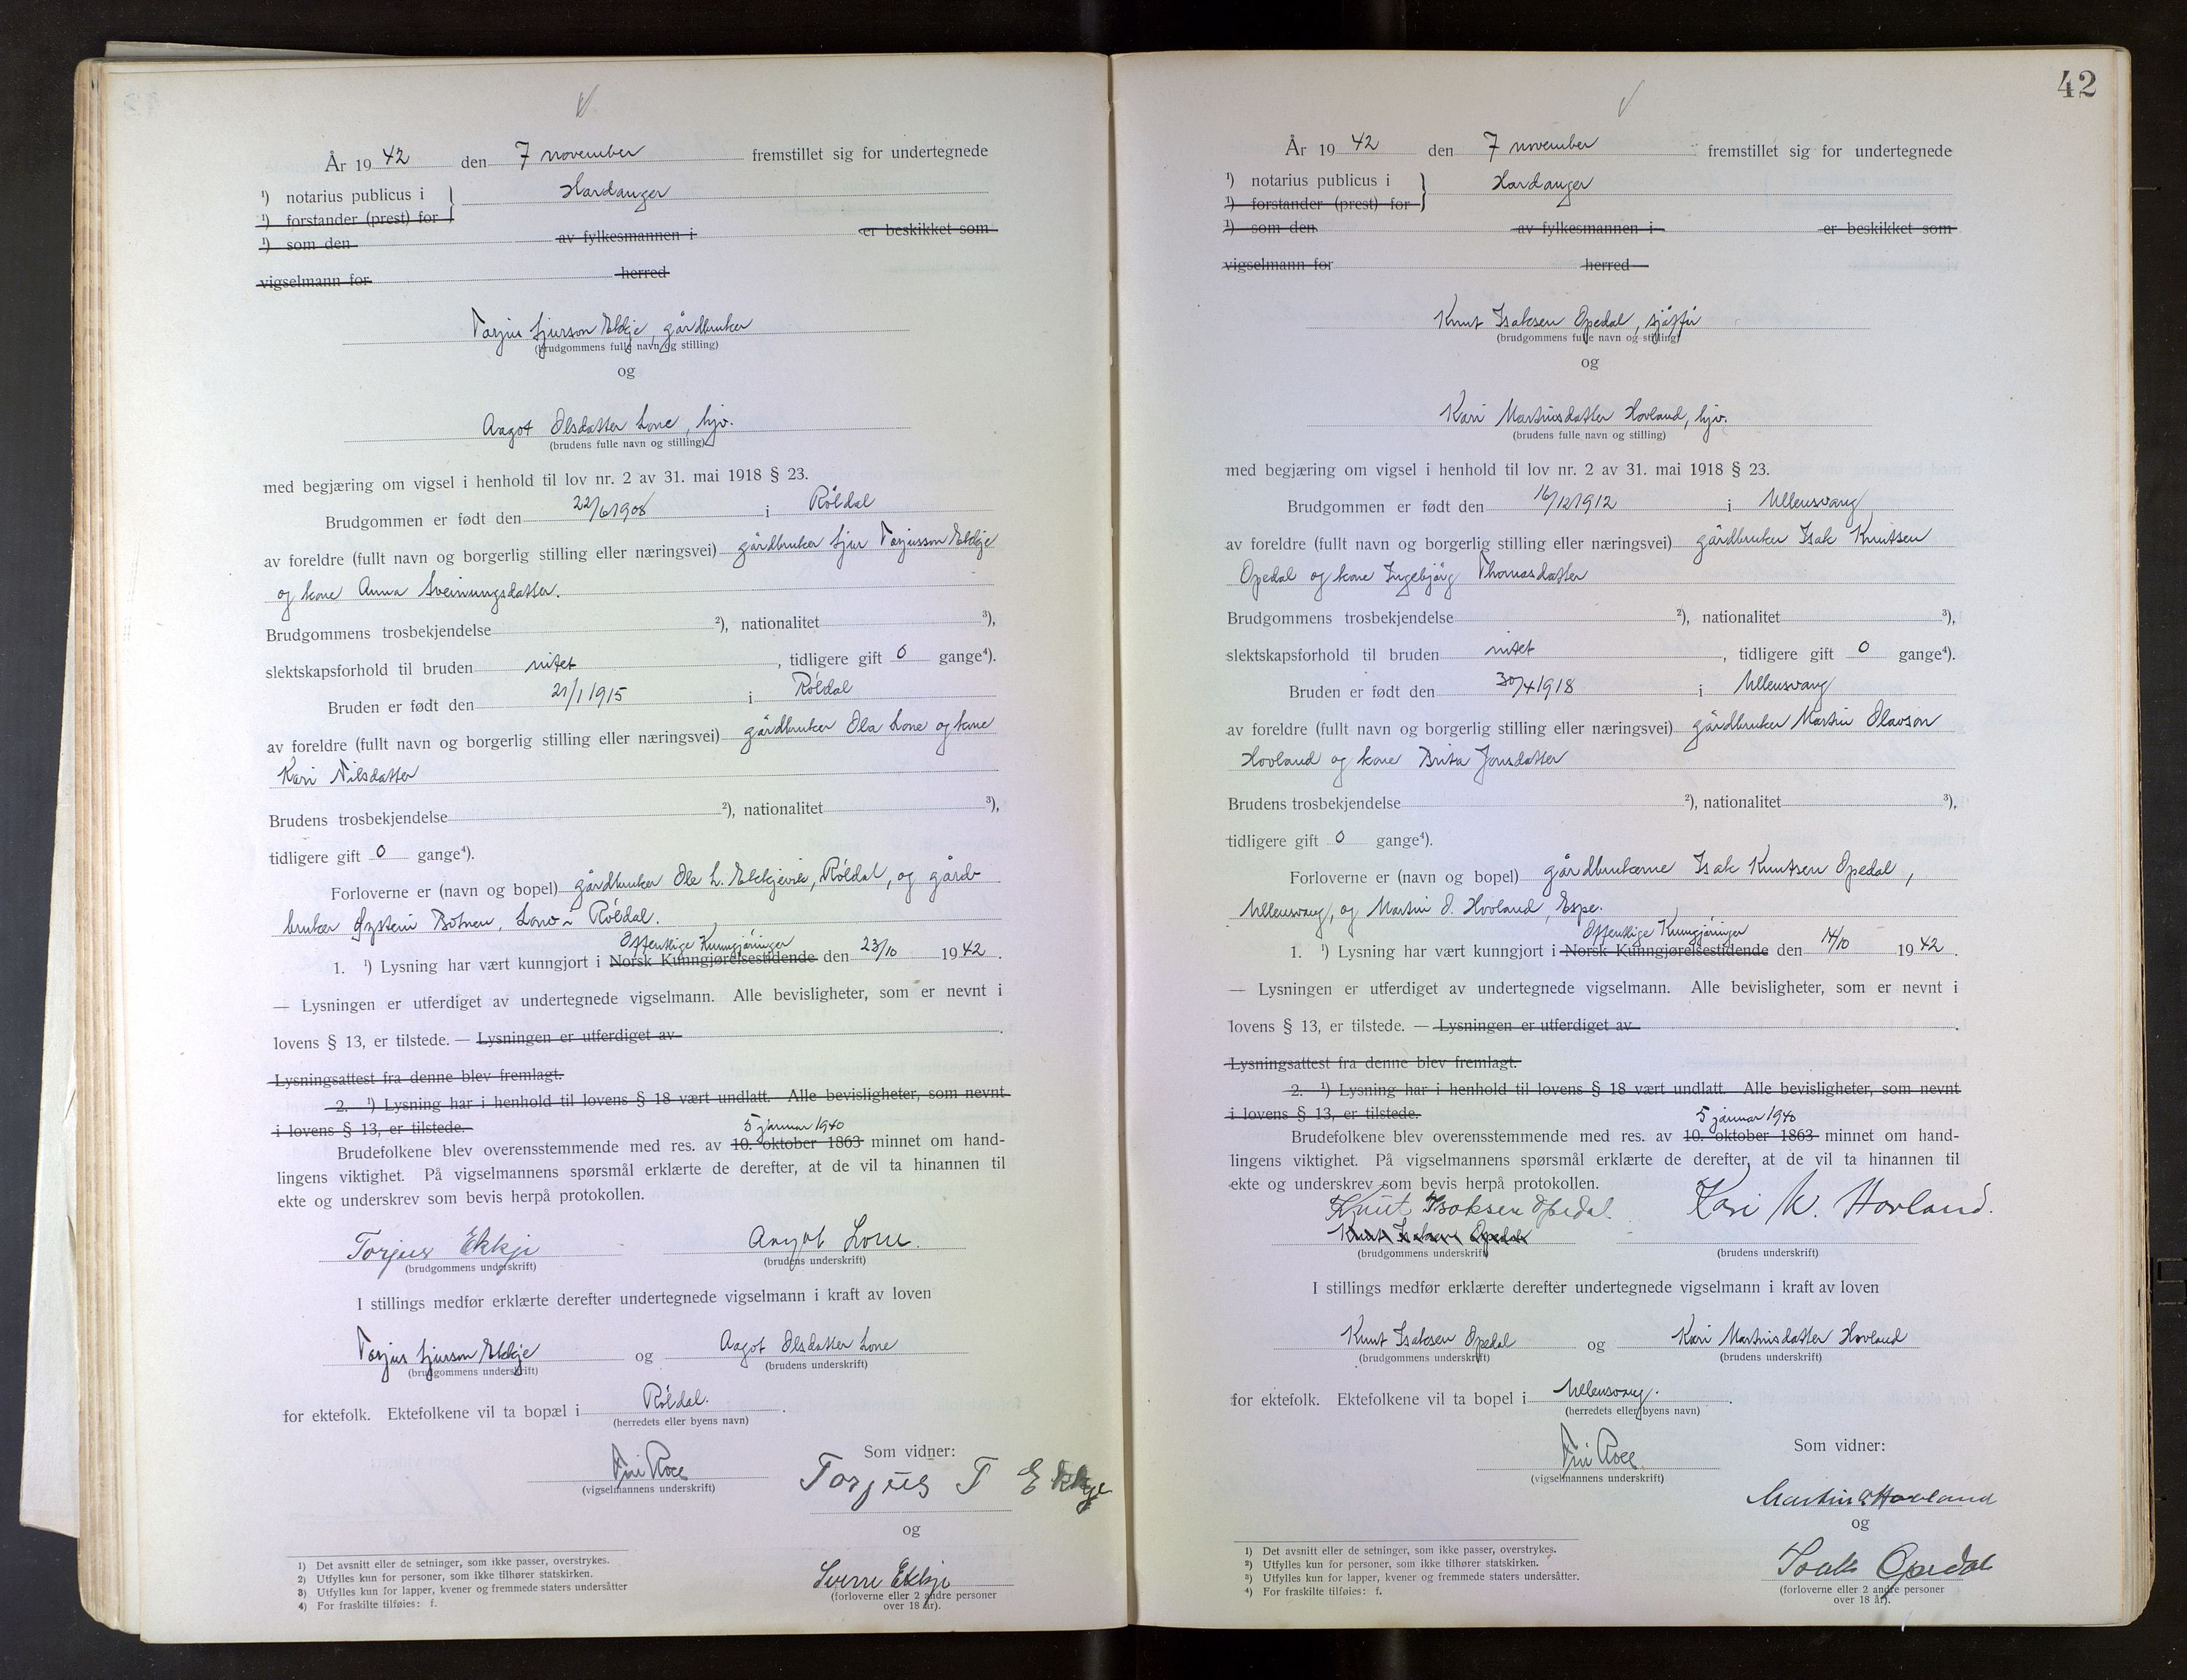 År 1942 den 7 november fremstillet sig for undertegnede
¹) notarius publicus i } Hardanger
¹) forstander (prest) for
¹) som den av fylkesmannen i er beskikket som
vigselmann for herred
Torjus Sjurson Ekkje, gårdbruker
(brudgommens fulle navn og stilling)
og
Aagot Olsdatter Lone, hjv.
(brudens fulle navn og stilling)
med begjæring om vigsel i henhold til lov nr. 2 av 31. mai 1918 § 23.
Brudgommen er født den 22/6 1908 i Röldal
av foreldre (fullt navn og borgerlig stilling eller næringsvei) gårdbruker Sjur Torjusson Ekkje
og kone Anna Sveinungsdatter.
Brudgommens trosbekjendelse ²), nationalitet ³),
slektskapsforhold til bruden intet, tidligere gift 0 gange⁴).
Bruden er født den 21/1 1915 i Röldal
av foreldre (fullt navn og borgerlig stilling eller næringsvei) gårdbruker Ola Lone og kone
Kari Nilsdatter
Brudens trosbekjendelse ²), nationalitet ³),
tidligere gift 0 gange⁴).
Forloverne er (navn og bopel) gårdbruker Ole L. Röldal, og gård-
bruker Øystein Botnen, Röldal.
Offentlige Kunngjöringer
1. ¹) Lysning har vært kunngjort i Norsk Kunngjørelsestidende den 23/10 1942.
— Lysningen er utferdiget av undertegnede vigselmann. Alle bevisligheter, som er nevnt i
lovens § 13, er tilstede. — Lysningen er utferdiget av .
Lysningsattest fra denne blev fremlagt.
2. ¹) Lysning har i henhold til lovens § 18 vært undlatt. Alle bevisligheter, som nevnt
i lovens § 13, er tilstede.
5 januar 1940
Brudefolkene blev overensstemmende med res. av 10. oktober 1863 minnet om hand-
lingens viktighet. På vigselmannens spørsmål erklærte de derefter, at de vil ta hinannen til
ekte og underskrev som bevis herpå protokollen.
Torjus Ekkje Aagot Lone.
(brudgommens underskrift) (brudens underskrift)
I stillings medfør erklærte derefter undertegnede vigselmann i kraft av loven
Torjus Sjurson Ekkje og Aagot Olsdatter Lone
(brudgommens underskrift) (brudens underskrift)
for ektefolk. Ektefolkene vil ta bopæl i Röldal.
(herredets eller byens navn)
Som vidner:
(vigselmannens underskrift)
Torjus T Ekkje
og
Sverre Ekkje
(forloverne eller 2 andre personer
over 18 år).
1) Det avsnitt eller de setninger, som ikke passer, overstrykes.
2) Utfylles kun for personer, som ikke tilhører statskirken.
3) Utfylles kun for lapper, kvener og fremmede staters undersåtter
4) For fraskilte tilføies: f.
42
År 1942 den 7 november fremstillet sig for undertegnede
¹) notarius publicus i } Hardanger
¹) forstander (prest) for
¹) som den av fylkesmannen i er beskikket som
vigselmann for herred
Knut Isaksen Opedal, sjåffør
(brudgommens fulle navn og stilling)
og
Kari Martinsdatter Hovland, hjv.
(brudens fulle navn og stilling)
med begjæring om vigsel i henhold til lov nr. 2 av 31. mai 1918 § 23.
Brudgommen er født den 16/12 1912 i Ullensvang
av foreldre (fullt navn og borgerlig stilling eller næringsvei) gårdbruker Isak Knutsen
Opedal og kone Ingebjörg Thomasdatter
Brudgommens trosbekjendelse ²), nationalitet ³),
slektskapsforhold til bruden intet, tidligere gift 0 gange⁴).
Bruden er født den 30/4 1918 i Ullensvang
av foreldre (fullt navn og borgerlig stilling eller næringsvei) gårdbruker Martin Olavson
Hovland og kone Brita Jonsdatter
Brudens trosbekjendelse ²), nationalitet ³),
tidligere gift 0 gange⁴).
Forloverne er (navn og bopel) gårdbrukerne Isak Knutsen Opedal,
Ullensvang, og Martin O. Hovland, Espe.
Offentlige Kunngjöringer
1. ¹) Lysning har vært kunngjort i Norsk Kunngjørelsestidende den 14/10 1942.
— Lysningen er utferdiget av undertegnede vigselmann. Alle bevisligheter, som er nevnt i
lovens § 13, er tilstede. — Lysningen er utferdiget av .
Lysningsattest fra denne blev fremlagt.
2. ¹) Lysning har i henhold til lovens § 18 vært undlatt. Alle bevisligheter, som nevnt
i lovens § 13, er tilstede.
5 januar 1940
Brudefolkene blev overensstemmende med res. av 10. oktober 1863 minnet om hand-
lingens viktighet. På vigselmannens spørsmål erklærte de derefter, at de vil ta hinannen til
ekte og underskrev som bevis herpå protokollen.
Knut Isaksen Opedal. Kari M. Hovland.
Knut Isaksen Opedal
(brudgommens underskrift) (brudens underskrift)
I stillings medfør erklærte derefter undertegnede vigselmann i kraft av loven
Knut Isaksen Opedal og Kari Martinsdatter Hovland
(brudgommens underskrift) (brudens underskrift)
for ektefolk. Ektefolkene vil ta bopel i Ullensvang.
(herredets eller byens navn)
Som vidner:
(vigselmannens underskrift)
Martin O Hovland
og
Isak Opedal
(forloverne eller 2 andre personer
over 18 år).
1) Det avsnitt eller de setninger, som ikke passer, overstrykes.
2) Utfylles kun for personer, som ikke tilhører statskirken.
3) Utfylles kun for lapper, kvener og fremmede staters undersåtter.
4) For fraskilte tilføies: f.